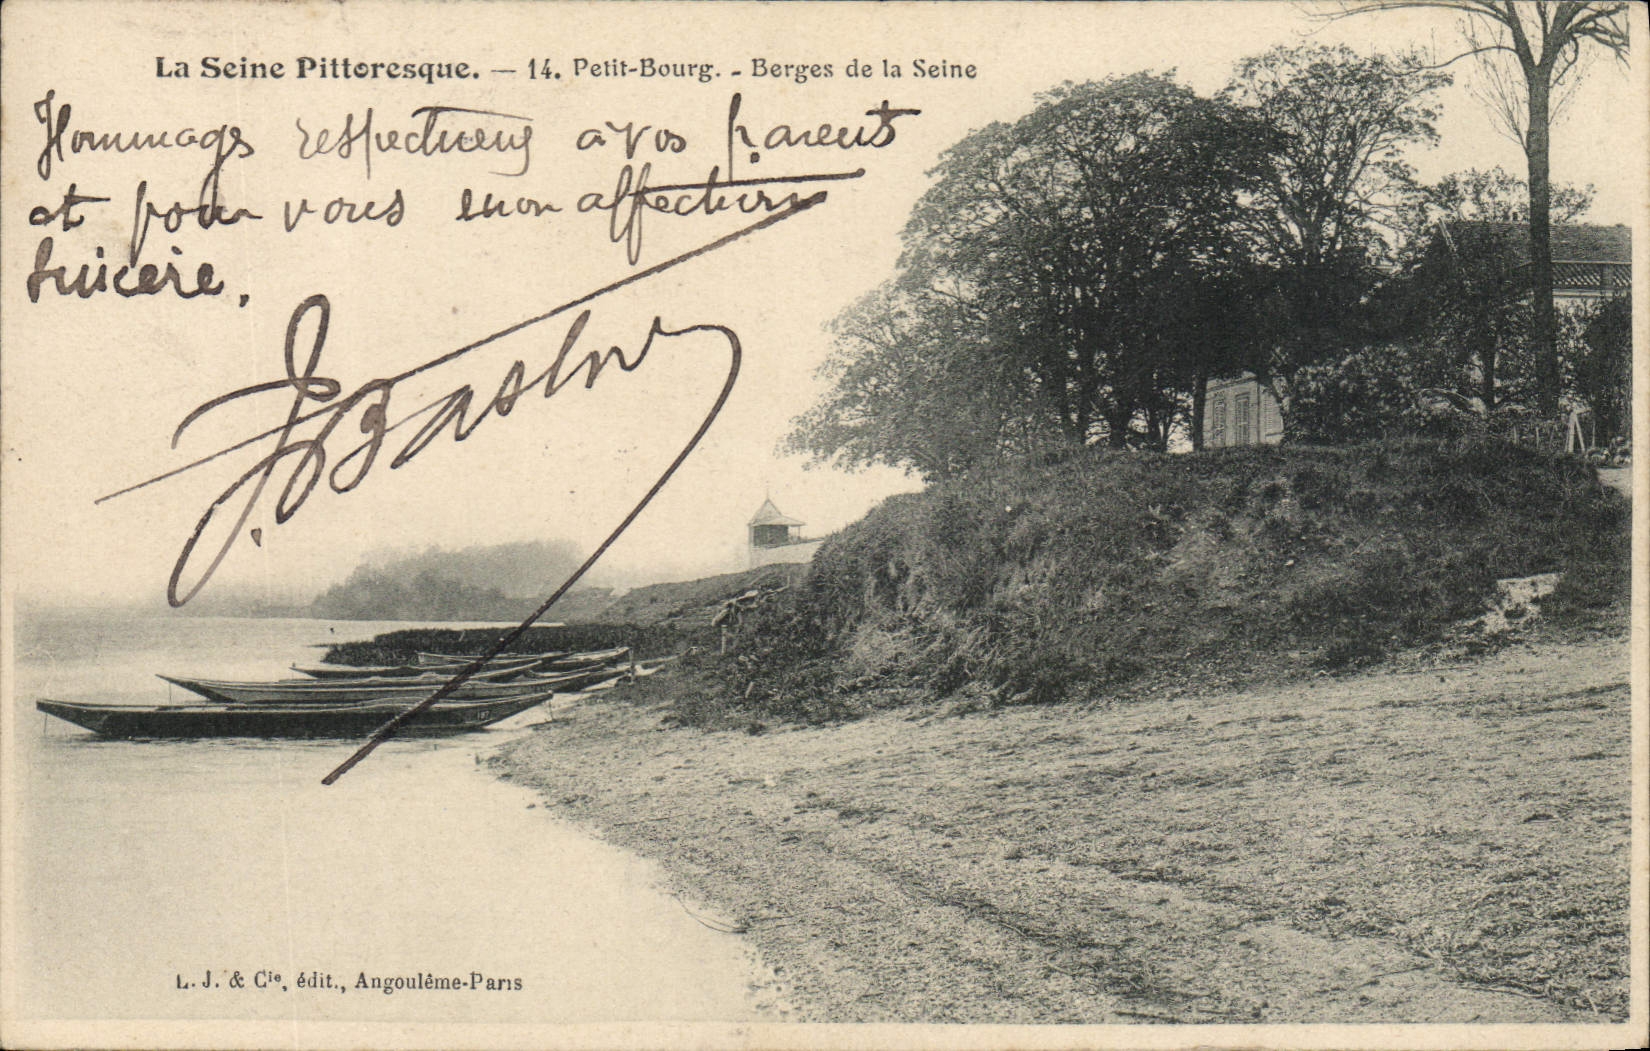 La Seine Pittoresque. — 14. Petit-Bourg. - Berges de la Seine
Hommages respectueux à vos parents
et pour vous mon affection
sincère.
L. J. & Cie, édit., Angoulême-Paris
187